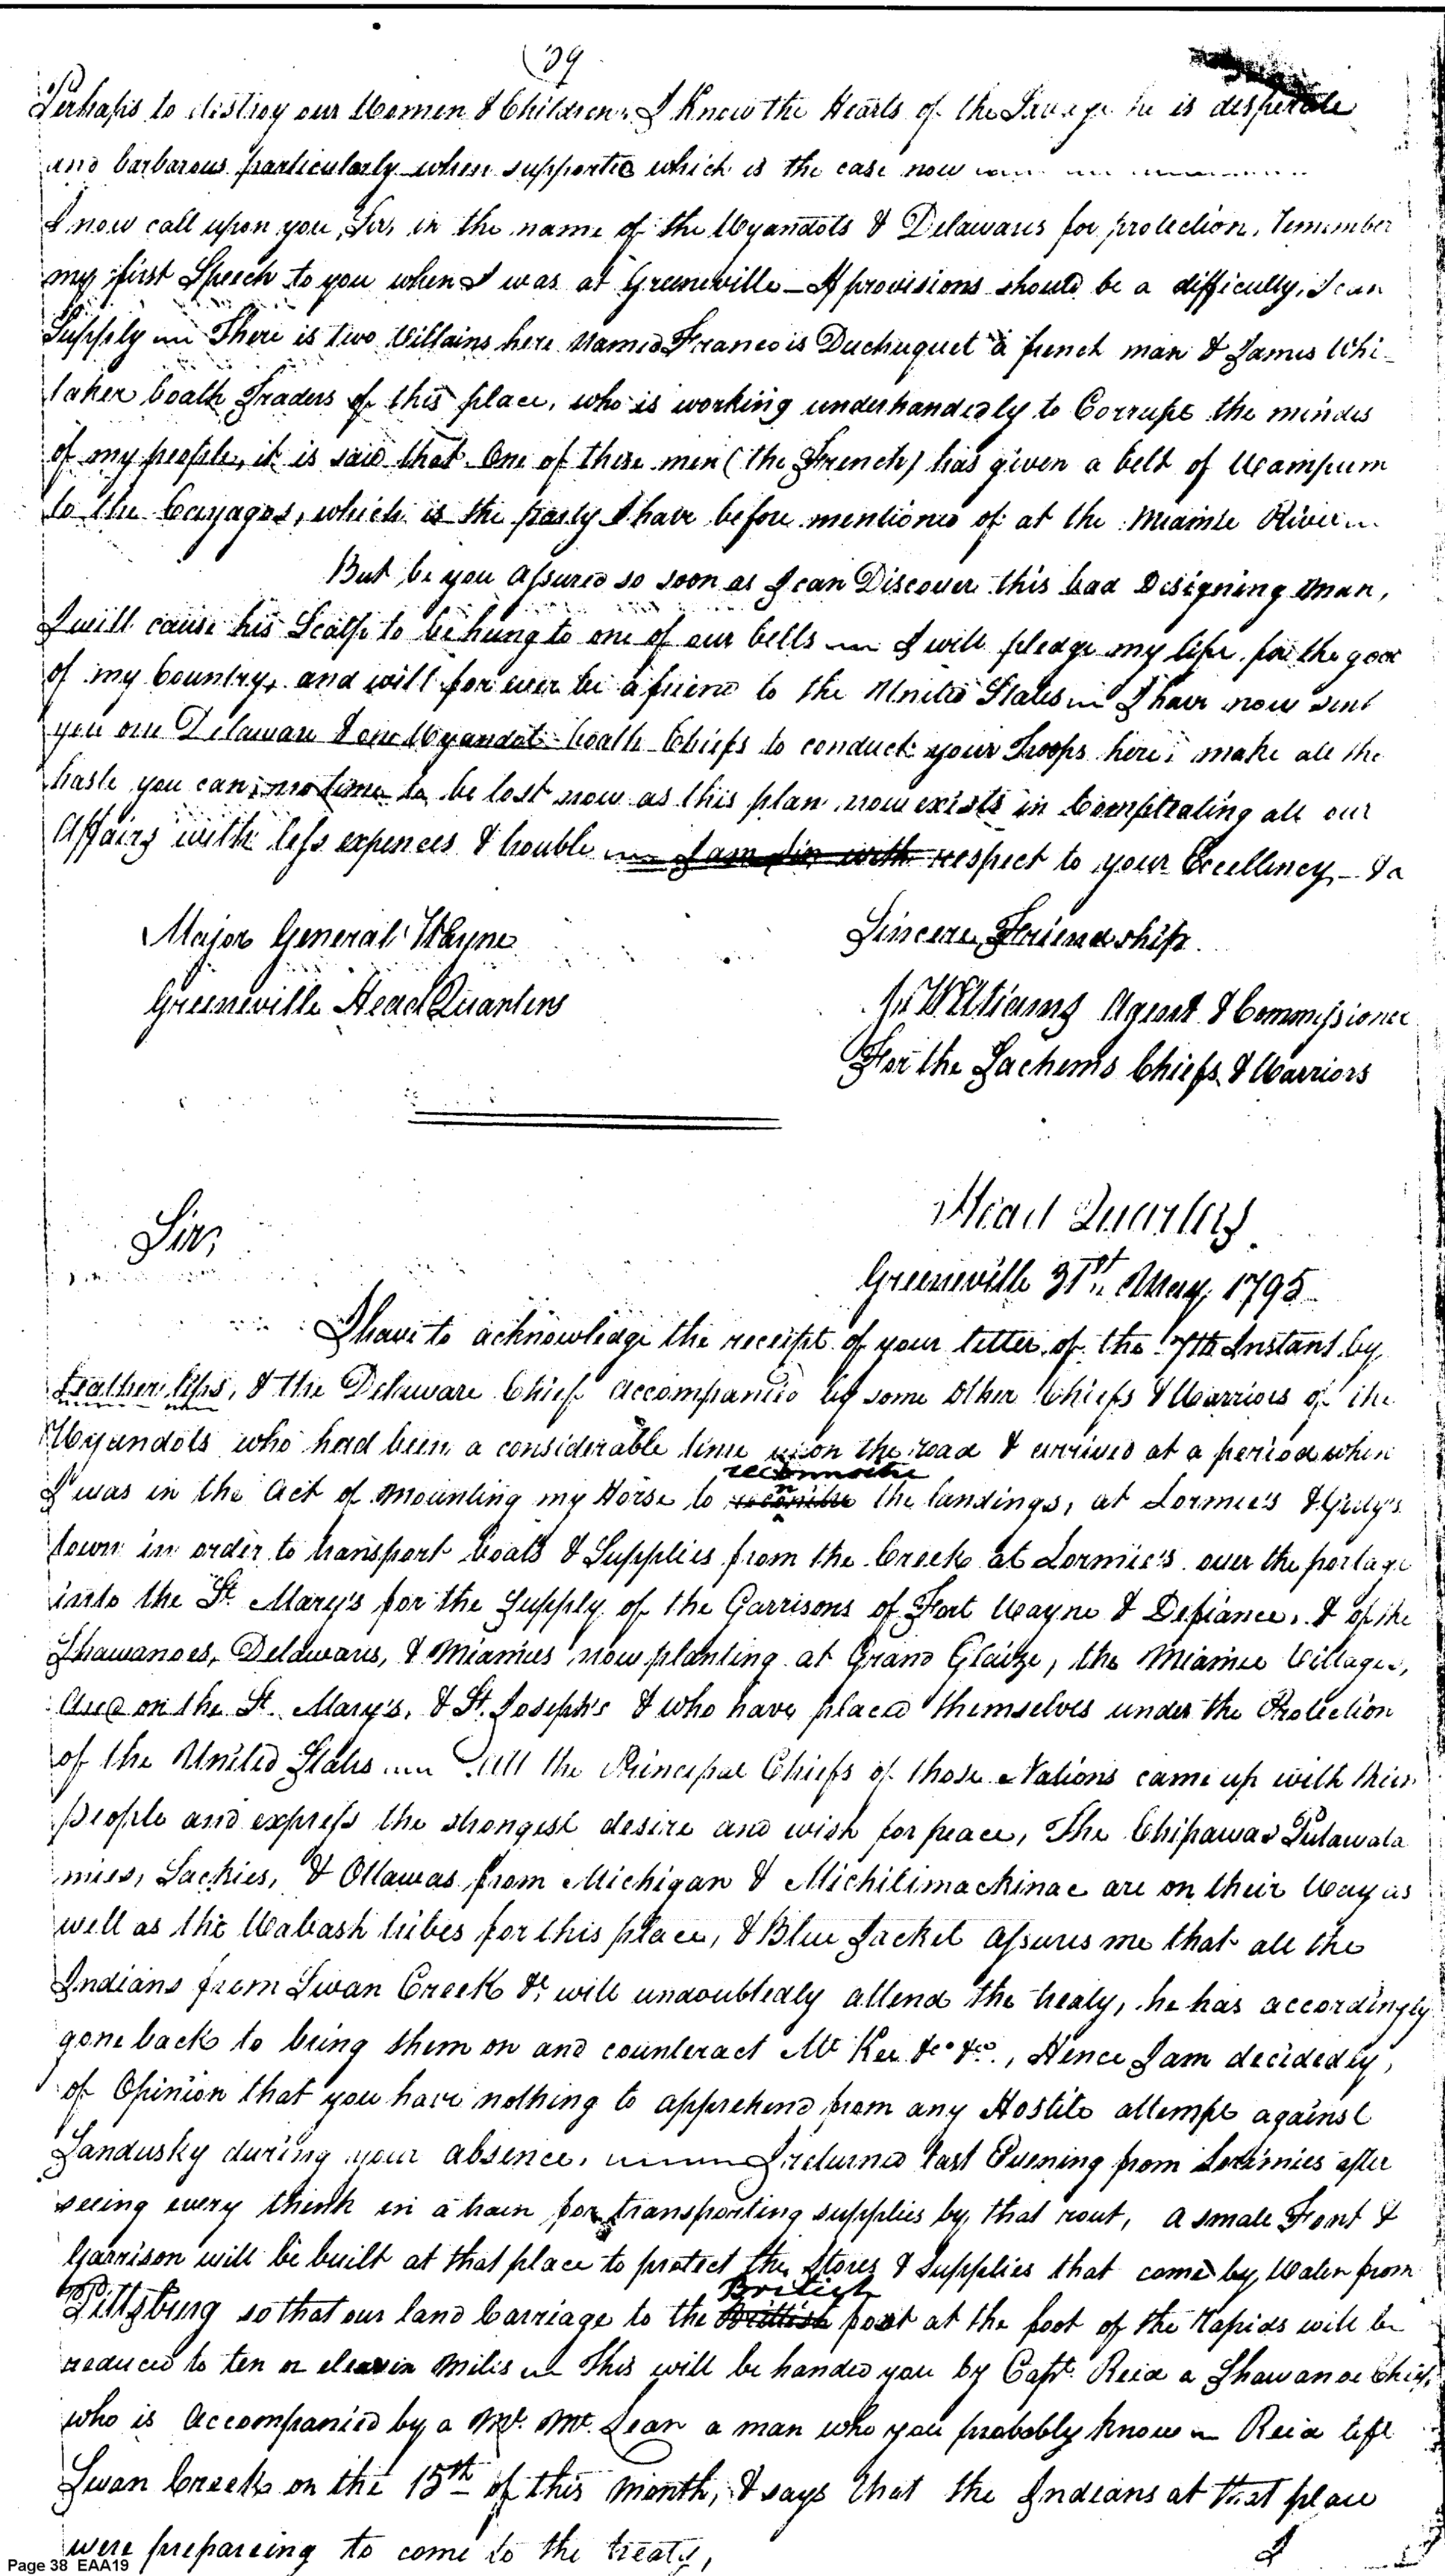 39
Perhaps to destroy our Women & Children. I Know the Hearts of the Savage he is desperate
and barbarous particularly when supported which is the case now
I now call upon you, Sir, in the name of the Wyandots & Delawares for protection, remember
my first Speech to you when I was at Greeneville — If provisions should be a difficulty, I can
Supply — There is two Villains here named Francois Duchuquet a french man & James Whi-
taker boath Traders of this place, who is working underhandedly to Corrupt the mindes
of my people, it is said that One of these men (the French) has given a belt of Wampum
to the Cayagos, which is the party I have before mentioned of at the Miamie River
But be you assured so soon as I can Discover this bad Designing Man,
I will cause his Scalp to be hung to one of our bells I will pledge my life for the good
of my Country, and will for ever be a friend to the United States I have now sent
you one Delaware & one Wyandot boath Chiefs to conduct your Troops here; make all the
haste you can, no time to be lost now as this plan now exists in Compleating all our
Affairs with less expences & trouble I am Sir with respect to your Excellency, — & a
Major General Wayne
Sincere Friendship.
Greeneville Head Quarters
Js Williams Agent & Commissioner
For the Sachems Chiefs & Warriors
Head Quarters
Sir,
Greeneville 31st May, 1795
I have to acknowledge the receipt of your letter of the 7th Instant by
Leather lips, & the Delaware Chief accompanied by some other Chiefs & Warriors of the
Wyandots who had been a considerable time upon the road & arrived at a period when
reconnoitre
I was in the act of mounting my Horse to the landings, at Lormie's & Girty's
town in order to transport boats & Supplies from the Creek at Lormie's over the portage
into the St. Mary's for the Supply of the Garrisons of Fort Wayne & Defiance, & of the
Shawanoes, Delawares, & Miamies now planting at Grand Glaize, the Miamie Villages,
And on the St. Mary's, & St. Joseph's & who have placed themselves under the Protection
of the United States All the Principal Chiefs of those Nations came up with their
people and express the strongest desire and wish for peace, The Chipawas Putawata
mies, Sackies, & Ottawas from Michigan & Michilimackinac are on their Way as
well as the Wabash tribes for this place, & Blue Jacket assures me that all the
Indians from Swan Creek &c will undoubtedly attend the treaty, he has accordingly
gone back to bring them on and counteract Mc Kee &co &co, Hence I am decidedly,
of Opinion that you have nothing to apprehend from any Hostile attempt against
Sandusky during your absence. I returned last Evening from Loramies after
seeing every think in a train for transporting supplies by that rout, a small Front &
Garrison will be built at that place to protect the Stores & supplies that come by Water from
British
Pittsburg so that our land Carriage to the Brittish post at the foot of the Rapids will be
reduced to ten or eleavin miles This will be handed you by Capt. Reid a Shawanoe Chief,
who is accompanied by a Mr. Mc. Lean a man who you probably know Reid left
Swan Creek on the 15th of this month, & says that the Indians at that place
were prepareing to come to the treaty,
I
Page 38 EAA19